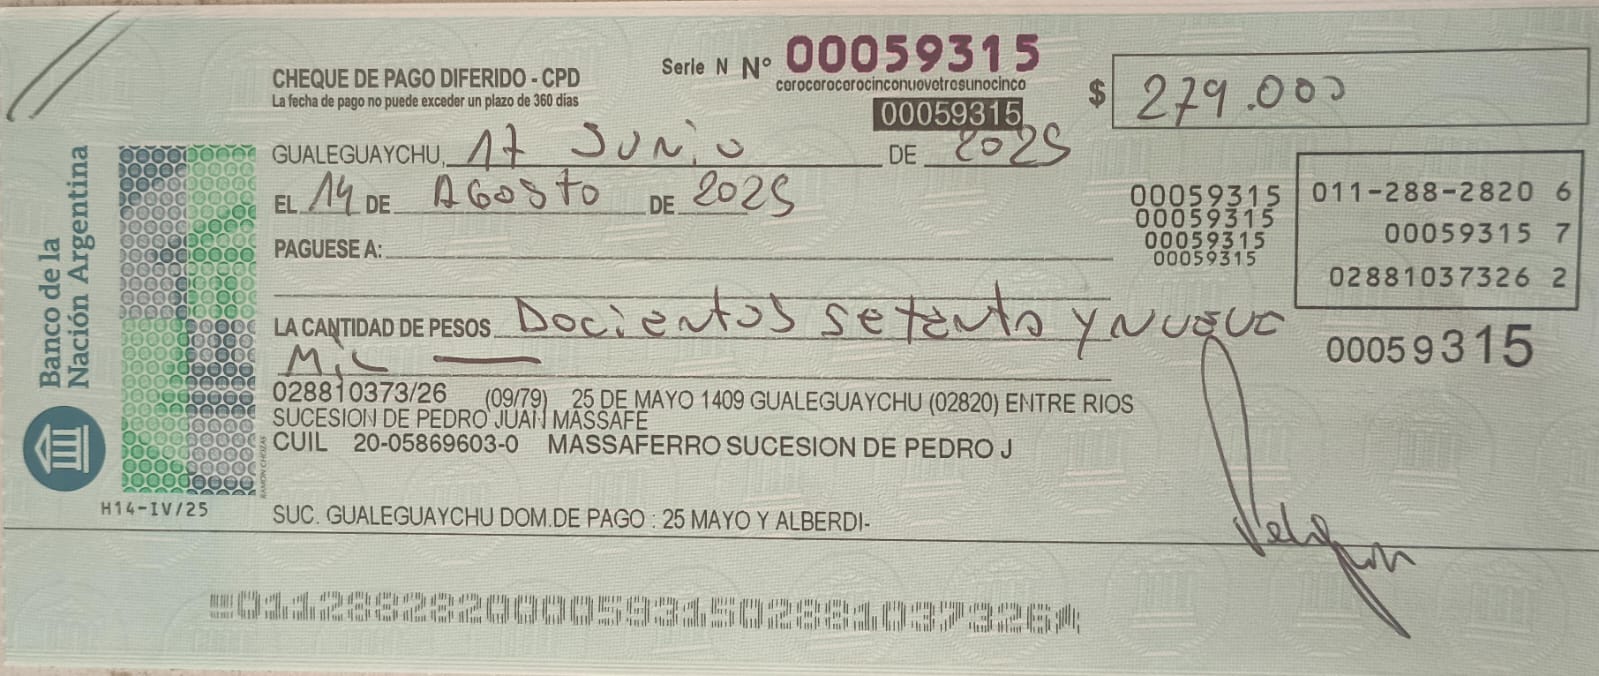 CHEQUE DE PAGO DIFERIDO - CPD
La fecha de pago no puede exceder un plazo de 360 días
Serie N Nº 00059315
cerocerocerocinconuevetresunocinco
00059315
$ 279.000
GUALEGUAYCHU, 17 Junio DE 2025
EL 14 DE Agosto DE 2025
PAGUESE A:
LA CANTIDAD DE PESOS Docientos setenta y nueve
Mil
00059315
00059315
00059315
00059315
011-288-2820 6
00059315 7
02881037326 2
00059315
028810373/26 (09/79) 25 DE MAYO 1409 GUALEGUAYCHU (02820) ENTRE RIOS
SUCESION DE PEDRO JUAN MASSAFE
CUIL 20-05869603-0 MASSAFERRO SUCESION DE PEDRO J
SUC. GUALEGUAYCHU DOM.DE PAGO : 25 MAYO Y ALBERDI-
Banco de la
Nación Argentina
RAMON CHOZAS
H14-IV/25
01128828200005931502881037326